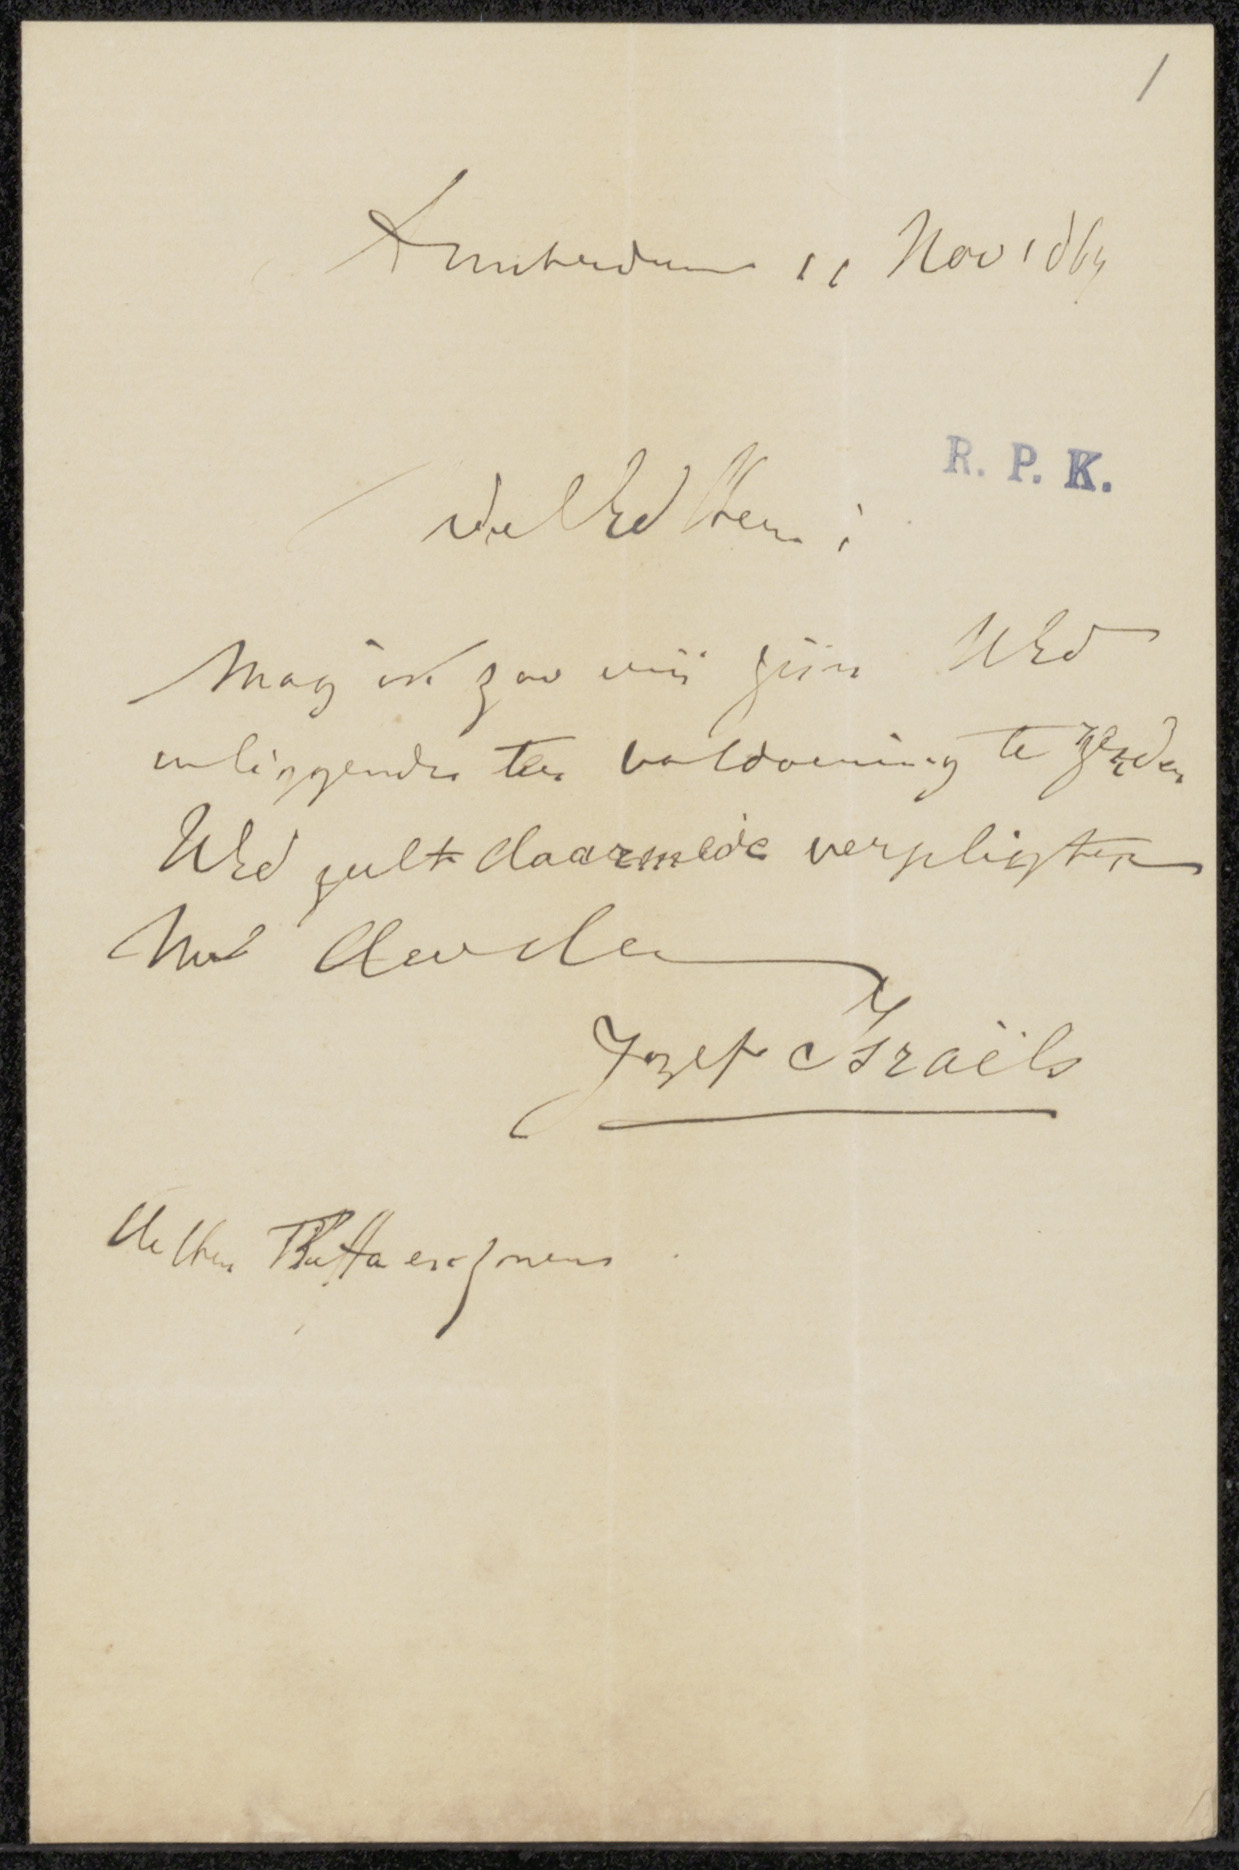 1
Amsterdam 11 Nov 186
R. P. K.
WelEd Heer:
Mag ik zoo vrij zijn UEd
inliggende ter voldoening te zenden
UEd zult daarmede verpligten
Met
Jozef Israëls
Buffa en Zonen